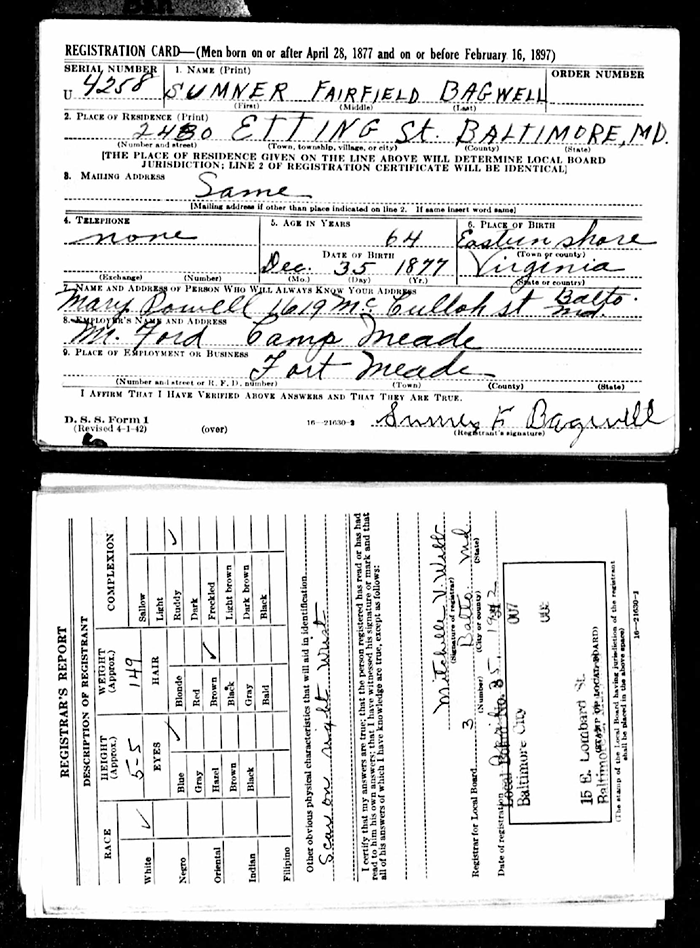 REGISTRATION CARD—(Men born on or after April 28, 1877 and on or before February 16, 1897)
SERIAL NUMBER
1. NAME (Print)
ORDER NUMBER
U 4258
SUMNER FAIRFIELD BAGWELL
(First) (Middle) (Last)
2. PLACE OF RESIDENCE (Print)
2430 ETTING St. BALTIMORE, MD.
(Number and street) (Town, township, village, or city) (County) (State)
[THE PLACE OF RESIDENCE GIVEN ON THE LINE ABOVE WILL DETERMINE LOCAL BOARD
JURISDICTION; LINE 2 OF REGISTRATION CERTIFICATE WILL BE IDENTICAL]
3. MAILING ADDRESS
Same
[Mailing address if other than place indicated on line 2. If same insert word same]
4. TELEPHONE
5. AGE IN YEARS
6. PLACE OF BIRTH
none
64
Eastern shore
(Town or county)
DATE OF BIRTH
Dec. 35 1877
Virginia
(Exchange) (Number)
(Mo.) (Day) (Yr.)
(State or country)
7. NAME AND ADDRESS OF PERSON WHO WILL ALWAYS KNOW YOUR ADDRESS
Mary Powell 1619 McCulloh st Balto. Md.
8. EMPLOYER'S NAME AND ADDRESS
M. Ford Camp Meade
9. PLACE OF EMPLOYMENT OR BUSINESS
Fort Meade
(Number and street or R. F. D. number) (Town) (County) (State)
I AFFIRM THAT I HAVE VERIFIED ABOVE ANSWERS AND THAT THEY ARE TRUE.
D. S. S. Form 1
(Revised 4-1-42) (over) 16—21630-2
Sumner F Bagwell
(Registrant's signature)
REGISTRAR'S REPORT
DESCRIPTION OF REGISTRANT
RACE
HEIGHT (Approx.)
WEIGHT (Approx.)
COMPLEXION
5-5
149
White ✓
EYES
HAIR
Sallow
Light
Negro
Blue ✓
Blonde
Ruddy ✓
Gray
Red
Dark
Oriental
Hazel
Brown ✓
Freckled
Brown
Black
Light brown
Indian
Black
Gray
Dark brown
Bald
Black
Filipino
Other obvious physical characteristics that will aid in identification
Scar on right Wrist
I certify that my answers are true; that the person registered has read or has had
read to him his own answers; that I have witnessed his signature or mark and that
all of his answers of which I have knowledge are true, except as follows:
Mitchelle V. Webb
(Signature of registrar)
Registrar for Local Board 3 Balto Md
(Number) (City or county) (State)
Date of registration April 25, 1942
Local Board No. 3
Baltimore City
007
15 E. Lombard St.
Baltimore
(STAMP OF LOCAL BOARD)
(The stamp of the Local Board having jurisdiction of the registrant
shall be placed in the above space)
16—21630-1